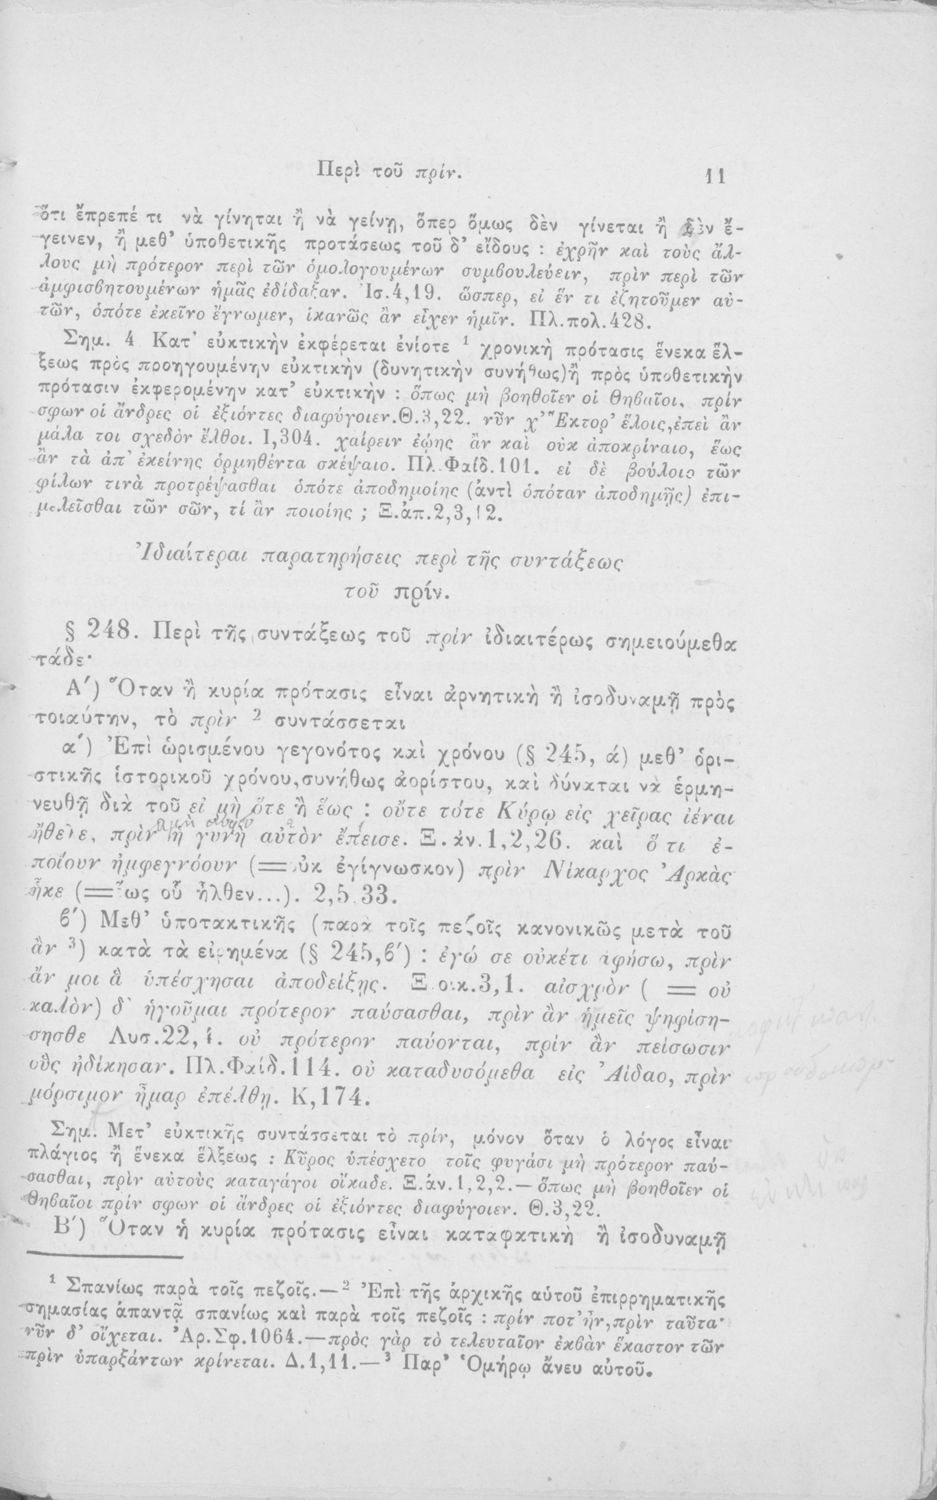 Περὶ τοῦ πρίν. 11
ὅτι ἔπρεπέ τι νὰ γίνηται ἢ νὰ γείνῃ, ὅπερ ὅμως δὲν γίνεται ἢ δὲν ἔ-
γεινεν, ἢ μεθ’ ὑποθετικῆς προτάσεως τοῦ δ’ εἴδους : ἐχρῆν καὶ τοὺς ἄλ-
λους μὴ πρότερον περὶ τῶν ὁμολογουμένων συμβουλεύειν, πρὶν περὶ τῶν
ἀμφισβητουμένων ἡμᾶς ἐδίδαξαν. Ἰσ.4,19. ὥσπερ, εἰ ἕν τι ἐζητοῦμεν αὐ-
τῶν, ὁπότε ἐκεῖνο ἔγνωμεν, ἱκανῶς ἂν εἶχεν ἡμῖν. Πλ.πολ.428.
Σημ. 4 Κατ’ εὐκτικὴν ἐκφέρεται ἐνίοτε ¹ χρονικὴ πρότασις ἕνεκα ἕλ-
ξεως πρὸς προηγουμένην εὐκτικὴν (δυνητικὴν συνήθως) ἢ πρὸς ὑποθετικὴν
πρότασιν ἐκφερομένην κατ’ εὐκτικὴν : ὅπως μὴ βοηθοῖεν οἱ Θηβαῖοι, πρίν
σφων οἱ ἄνδρες οἱ ἐξιόντες διαφύγοιεν.Θ.3,22. νῦν χ’ Ἕκτορ’ ἕλοις,ἐπεὶ ἂν
μάλα τοι σχεδὸν ἔλθοι. Ι,304. χαίρειν ἐῴης ἂν καὶ οὐκ ἀποκρίναιο, ἕως
ἂν τὰ ἀπ’ ἐκείνης ὁρμηθέντα σκέψαιο. Πλ.Φαίδ.101. εἰ δὲ βούλοιο τῶν
φίλων τινὰ προτρέψασθαι ὁπότε ἀποδημοίης (ἀντὶ ὁπόταν ἀποδημῇς) ἐπι-
μελεῖσθαι τῶν σῶν, τί ἂν ποιοίης ; Ξ.ἀπ.2,3,12.
Ἰδιαίτεραι παρατηρήσεις περὶ τῆς συντάξεως
τοῦ πρίν.
§ 248. Περὶ τῆς συντάξεως τοῦ πρὶν ἰδιαιτέρως σημειούμεθα
τάδε·
Α΄) Ὅταν ἢ κυρία πρότασις εἶναι ἀρνητικὴ ἢ ἰσοδυναμῇ πρὸς
τοιαύτην, τὸ πρὶν ² συντάσσεται
α΄) Ἐπὶ ὡρισμένου γεγονότος καὶ χρόνου (§ 245, ά) μεθ’ ὁρι-
στικῆς ἱστορικοῦ χρόνου,συνήθως ἀορίστου, καὶ δύναται νὰ ἑρμη-
νευθῇ διὰ τοῦ εἰ μὴ ὅτε ἢ ἕως : οὔτε τότε Κύρῳ εἰς χεῖρας ἰέναι
ἤθελε, πρὶν ἡ γυνὴ αὐτὸν ἔπεισε. Ξ.ἀν.1,2,26. καὶ ὅ τι ἐ-
ποίουν ἠμφεγνόουν (= οὐκ ἐγίγνωσκον) πρὶν Νίκαρχος Ἀρκὰς
ἧκε (=ἕως οὗ ἦλθεν...). 2,5,33.
β΄) Μεθ’ ὑποτακτικῆς (παρὰ τοῖς πεζοῖς κανονικῶς μετὰ τοῦ
ἂν ³) κατὰ τὰ εἰρημένα (§ 245,β΄) : ἐγώ σε οὐκέτι ἀφήσω, πρὶν
ἄν μοι ἃ ὑπέσχησαι ἀποδείξῃς. Ξ οἰκ.3,1. αἰσχρὸν ( = οὐ
καλὸν) δ’ ἡγοῦμαι πρότερον παύσασθαι, πρὶν ἂν ἡμεῖς ψηφίση-
σησθε Λυσ.22,4. οὐ πρότερον παύονται, πρὶν ἂν πείσωσιν
οὓς ἠδίκησαν. Πλ.Φαίδ.114. οὐ καταδυσόμεθα εἰς Ἀίδαο, πρὶν
μόρσιμον ἦμαρ ἐπέλθῃ. Κ,174.
Σημ. Μετ’ εὐκτικῆς συντάσσεται τὸ πρίν, μόνον ὅταν ὁ λόγος εἶναι
πλάγιος ἢ ἕνεκα ἕλξεως : Κῦρος ὑπέσχετο τοῖς φυγάσι μὴ πρότερον παύ-
σασθαι, πρὶν αὐτοὺς καταγάγοι οἴκαδε. Ξ.ἀν.1,2,2.— ὅπως μὴ βοηθοῖεν οἱ
Θηβαῖοι πρίν σφων οἱ ἄνδρες οἱ ἐξιόντες διαφύγοιεν. Θ.3,22.
Β΄) Ὅταν ἡ κυρία πρότασις εἶναι καταφατικὴ ἢ ἰσοδυναμῇ
¹ Σπανίως παρὰ τοῖς πεζοῖς.—² Ἐπὶ τῆς ἀρχικῆς αὐτοῦ ἐπιρρηματικῆς
σημασίας ἀπαντᾷ σπανίως καὶ παρὰ τοῖς πεζοῖς : πρίν ποτ’ ἦν,πρὶν ταῦτα·
νῦν δ’ οἴχεται. Ἀρ.Σφ.1064.—πρὸς γὰρ τὸ τελευταῖον ἐκβὰν ἕκαστον τῶν
πρὶν ὑπαρξάντων κρίνεται. Δ.1,11.—³ Παρ’ Ὁμήρῳ ἄνευ αὐτοῦ.